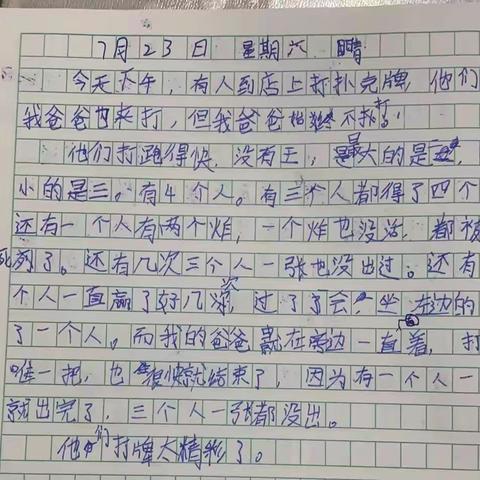 7月23日 星期六 晴
今天下午，有人到店上打扑克牌，他们
我爸爸也来打，但我爸爸 不打！
他们打跑得快，没有王，最大的是二，
小的是三。有4个人。有三个人都得了四个
还有一个人有两个炸，一个炸也没活，都被
死列了。还有几次三个人一张也没出过。还有
个人一直赢了好几次，过了了会，坐左边的
了一个人。而我的爸爸就在旁边一直看，打
唯一把，也很快就结束了，因为有一个人一
就出完了，三个人一张都没出。
他们打牌太精彩了。